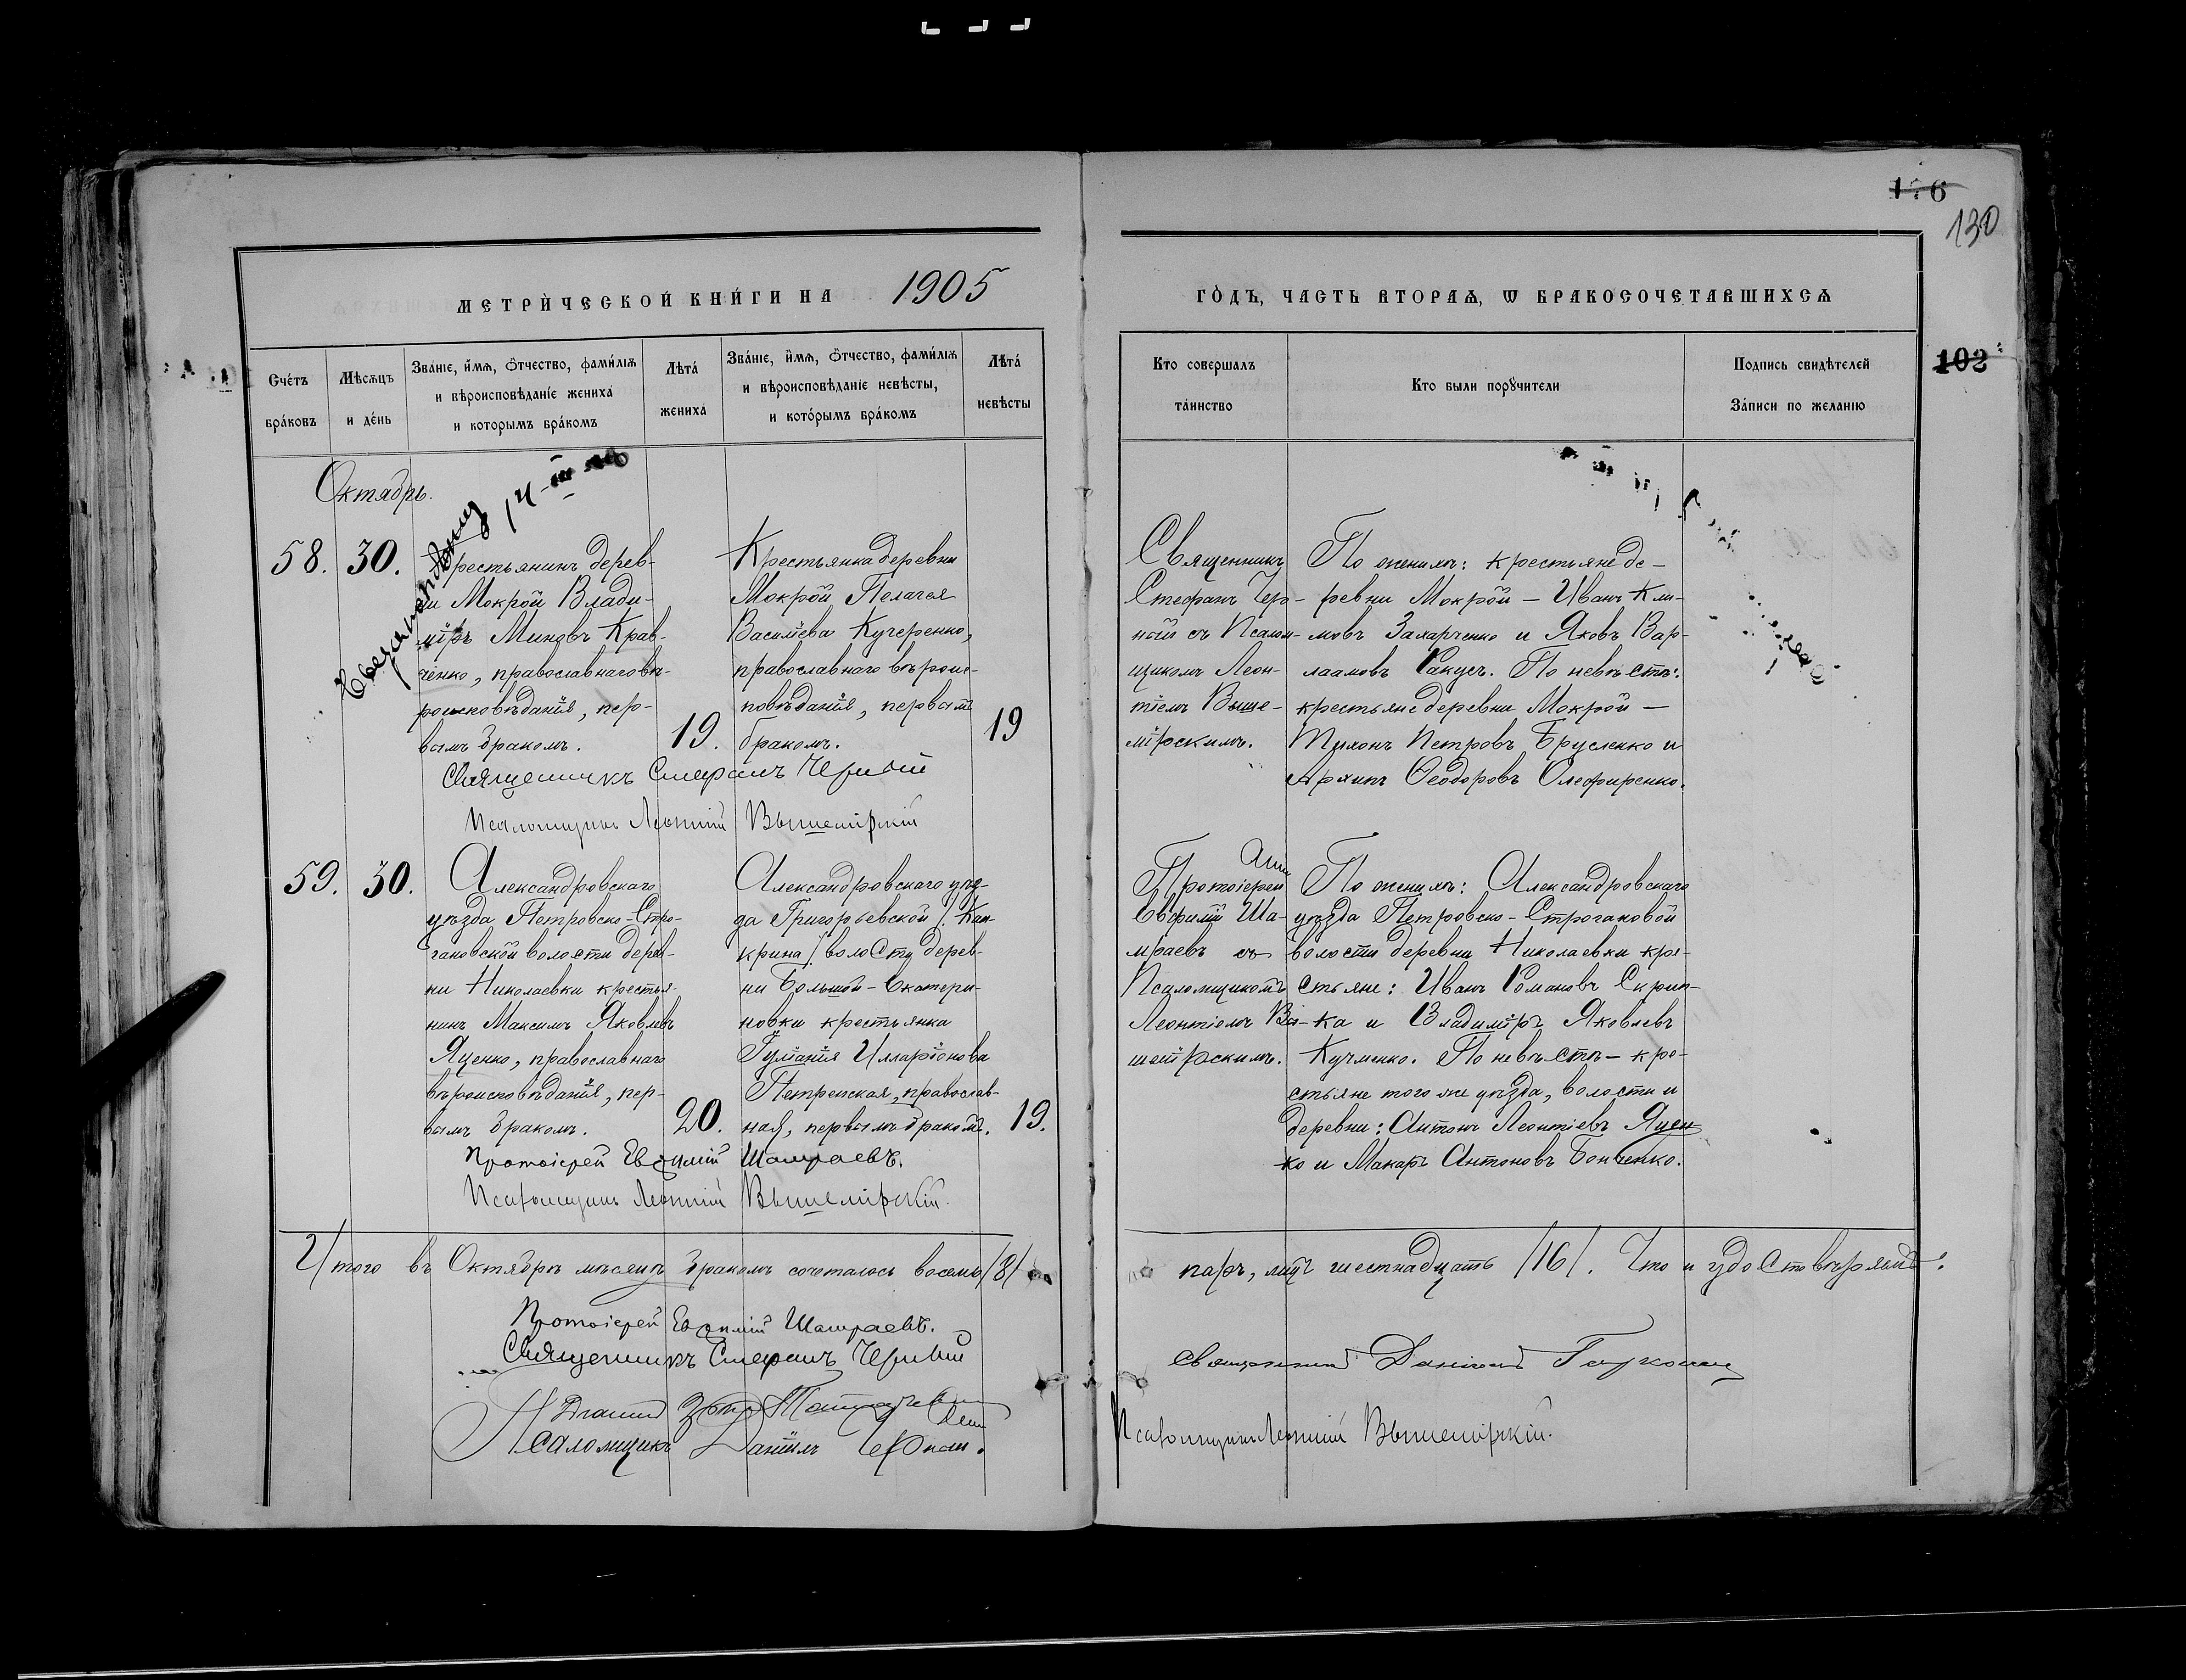 176
130
102
МЕТРИЧЕСКОЙ КНИГИ НА 1905
ГОДЪ, ЧАСТЬ ВТОРАЯ, Ѡ БРАКОСОЧЕТАВШИХСЯ
Счетъ браковъ
Мѣсяцъ и день
Званіе, имя, отчество, фамилія
и вѣроисповѣданіе жениха
и которымъ бракомъ
Лѣта
жениха
Званіе, имя, отчество, фамилія
и вѣроисповѣданіе невѣсты,
и которымъ бракомъ
Лѣта
невѣсты
Кто совершалъ
таинство
Кто были поручители
Подпись свидѣтелей
записи по желанію
Октябрь.
58. 30.
Крестьянинъ дерев-
ни Мокрой Влади-
міръ Миновъ Крав-
ченко, православнаго вѣ-
роисповѣданія, пер-
вымъ бракомъ.
19.
Крестьянка деревни
Мокрой Пелагея
Васильева Кучеренко,
православнаго вѣроис-
повѣданія, первымъ
бракомъ.
19
Священникъ
Стефанъ Чер-
ный съ Псалом-
щикомъ Леон-
тіемъ Выше-
мірскимъ.
По женихѣ: крестьяне де-
ревни Мокрой — Иванъ Кли-
мовъ Захарченко и Яковъ Вар-
лаамовъ Гакусъ. По невѣстѣ:
крестьяне деревни Мокрой —
Тихонъ Петровъ Брусленко и
Архипъ Ѳеодоровъ Олефиренко.
Священникъ Стефанъ Черный
Псаломщикъ Леонтій Вышемірскій
59. 30.
Александровскаго
уѣзда Петровско-Стро-
гановской волости дерев-
ни Николаевки крестья-
нинъ Максимъ Яковлевъ
Яценко, православнаго
вѣроисповѣданія, пер-
вымъ бракомъ.
20.
Александровскаго уѣз-
да Григорьевской /Кан-
крина/ волости дерев-
ни Большой-Екатери-
новки крестьянка
Гуліанія Илларіонова
Петренская, православ-
ная, первымъ бракомъ.
19.
Протоіерей
Евфимій Ша-
мраевъ съ
Псаломщикомъ
Леонтіемъ Вы-
шемірскимъ.
По женихѣ: Александровскаго
уѣзда Петровско-Строгановой
волости деревни Николаевки кре-
стьяне: Иванъ Романовъ Скрип-
ка и Владиміръ Яковлевъ
Кучменко. По невѣстѣ — кре-
стьяне того же уѣзда, волости и
деревни: Антонъ Леонтіевъ Яцен-
ко и Макаръ Антоновъ Бонченко.
Протоіерей Евфимій Шамраевъ.
Псаломщикъ Леонтій Вышемірскій.
Итого въ Октябрѣ мѣсяцѣ бракомъ сочеталось восемь /8/
паръ, лицъ шестнадцать /16/. Что и удостовѣряемъ:
Протоіерей Евфимій Шамраевъ.
Священникъ Стефанъ Черный
Псаломщикъ Даніилъ
Священникъ
Псаломщикъ Леонтій Вышемірскій.